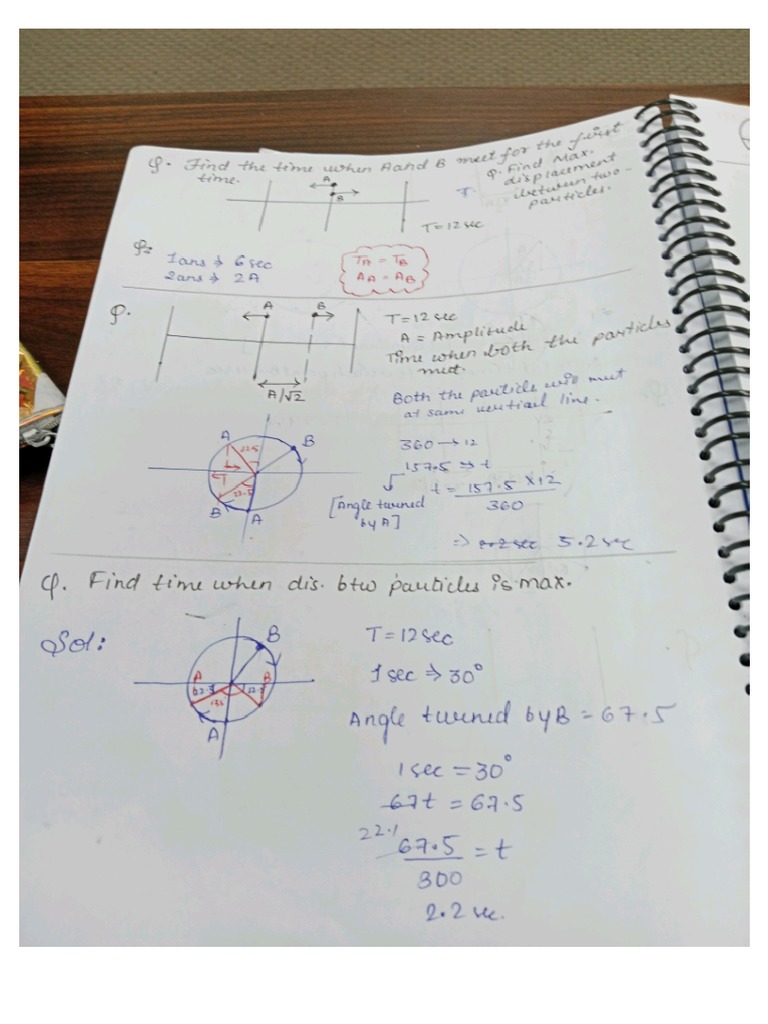 Q. Find the time when A and B meet for the first
time.
Q. Find Max.
displacement
between two-
particles.
A
B
T = 12 sec
Q:
1 ans → 6 sec
2 ans → 2A
TA = TB
AA = AB
Q.
A
B
T = 12 sec
A = Amplitude
Time when both the particles
meet.
A/√2
Both the particle will meet
at same vertical line.
A
B
22.5
22.5
B
A
360 → 12
157.5 → t
[Angle turned
by A]
t = 157.5 × 12
360
⇒ 2.2 sec 5.2 sec
Q. Find time when dis. btw particles is max.
Sol:
B
A
B
22.5
22.5
135
A
T = 12 sec
1 sec ⇒ 30°
Angle turned by B = 67.5
1 sec = 30°
67t = 67.5
22.1
67.5 = t
300
2.2 sec.